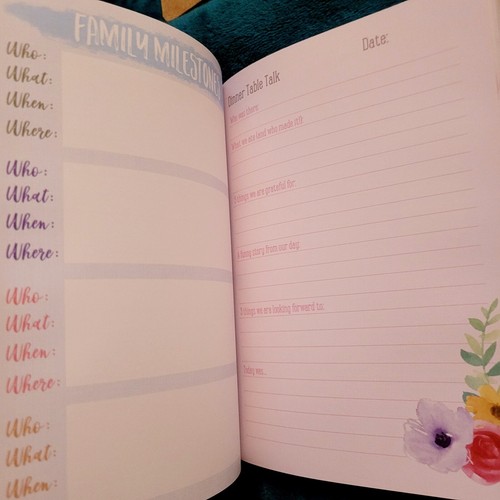 FAMILY MILESTONES
Who:
What:
When:
Where:
Who:
What:
When:
Where:
Who:
What:
When:
Where:
Who:
What:
When:
Date:
Dinner Table Talk
Who was there:
What we ate (and who made it!):
things we are grateful for:
A funny story from our day:
3 things we are looking forward to:
Today was...